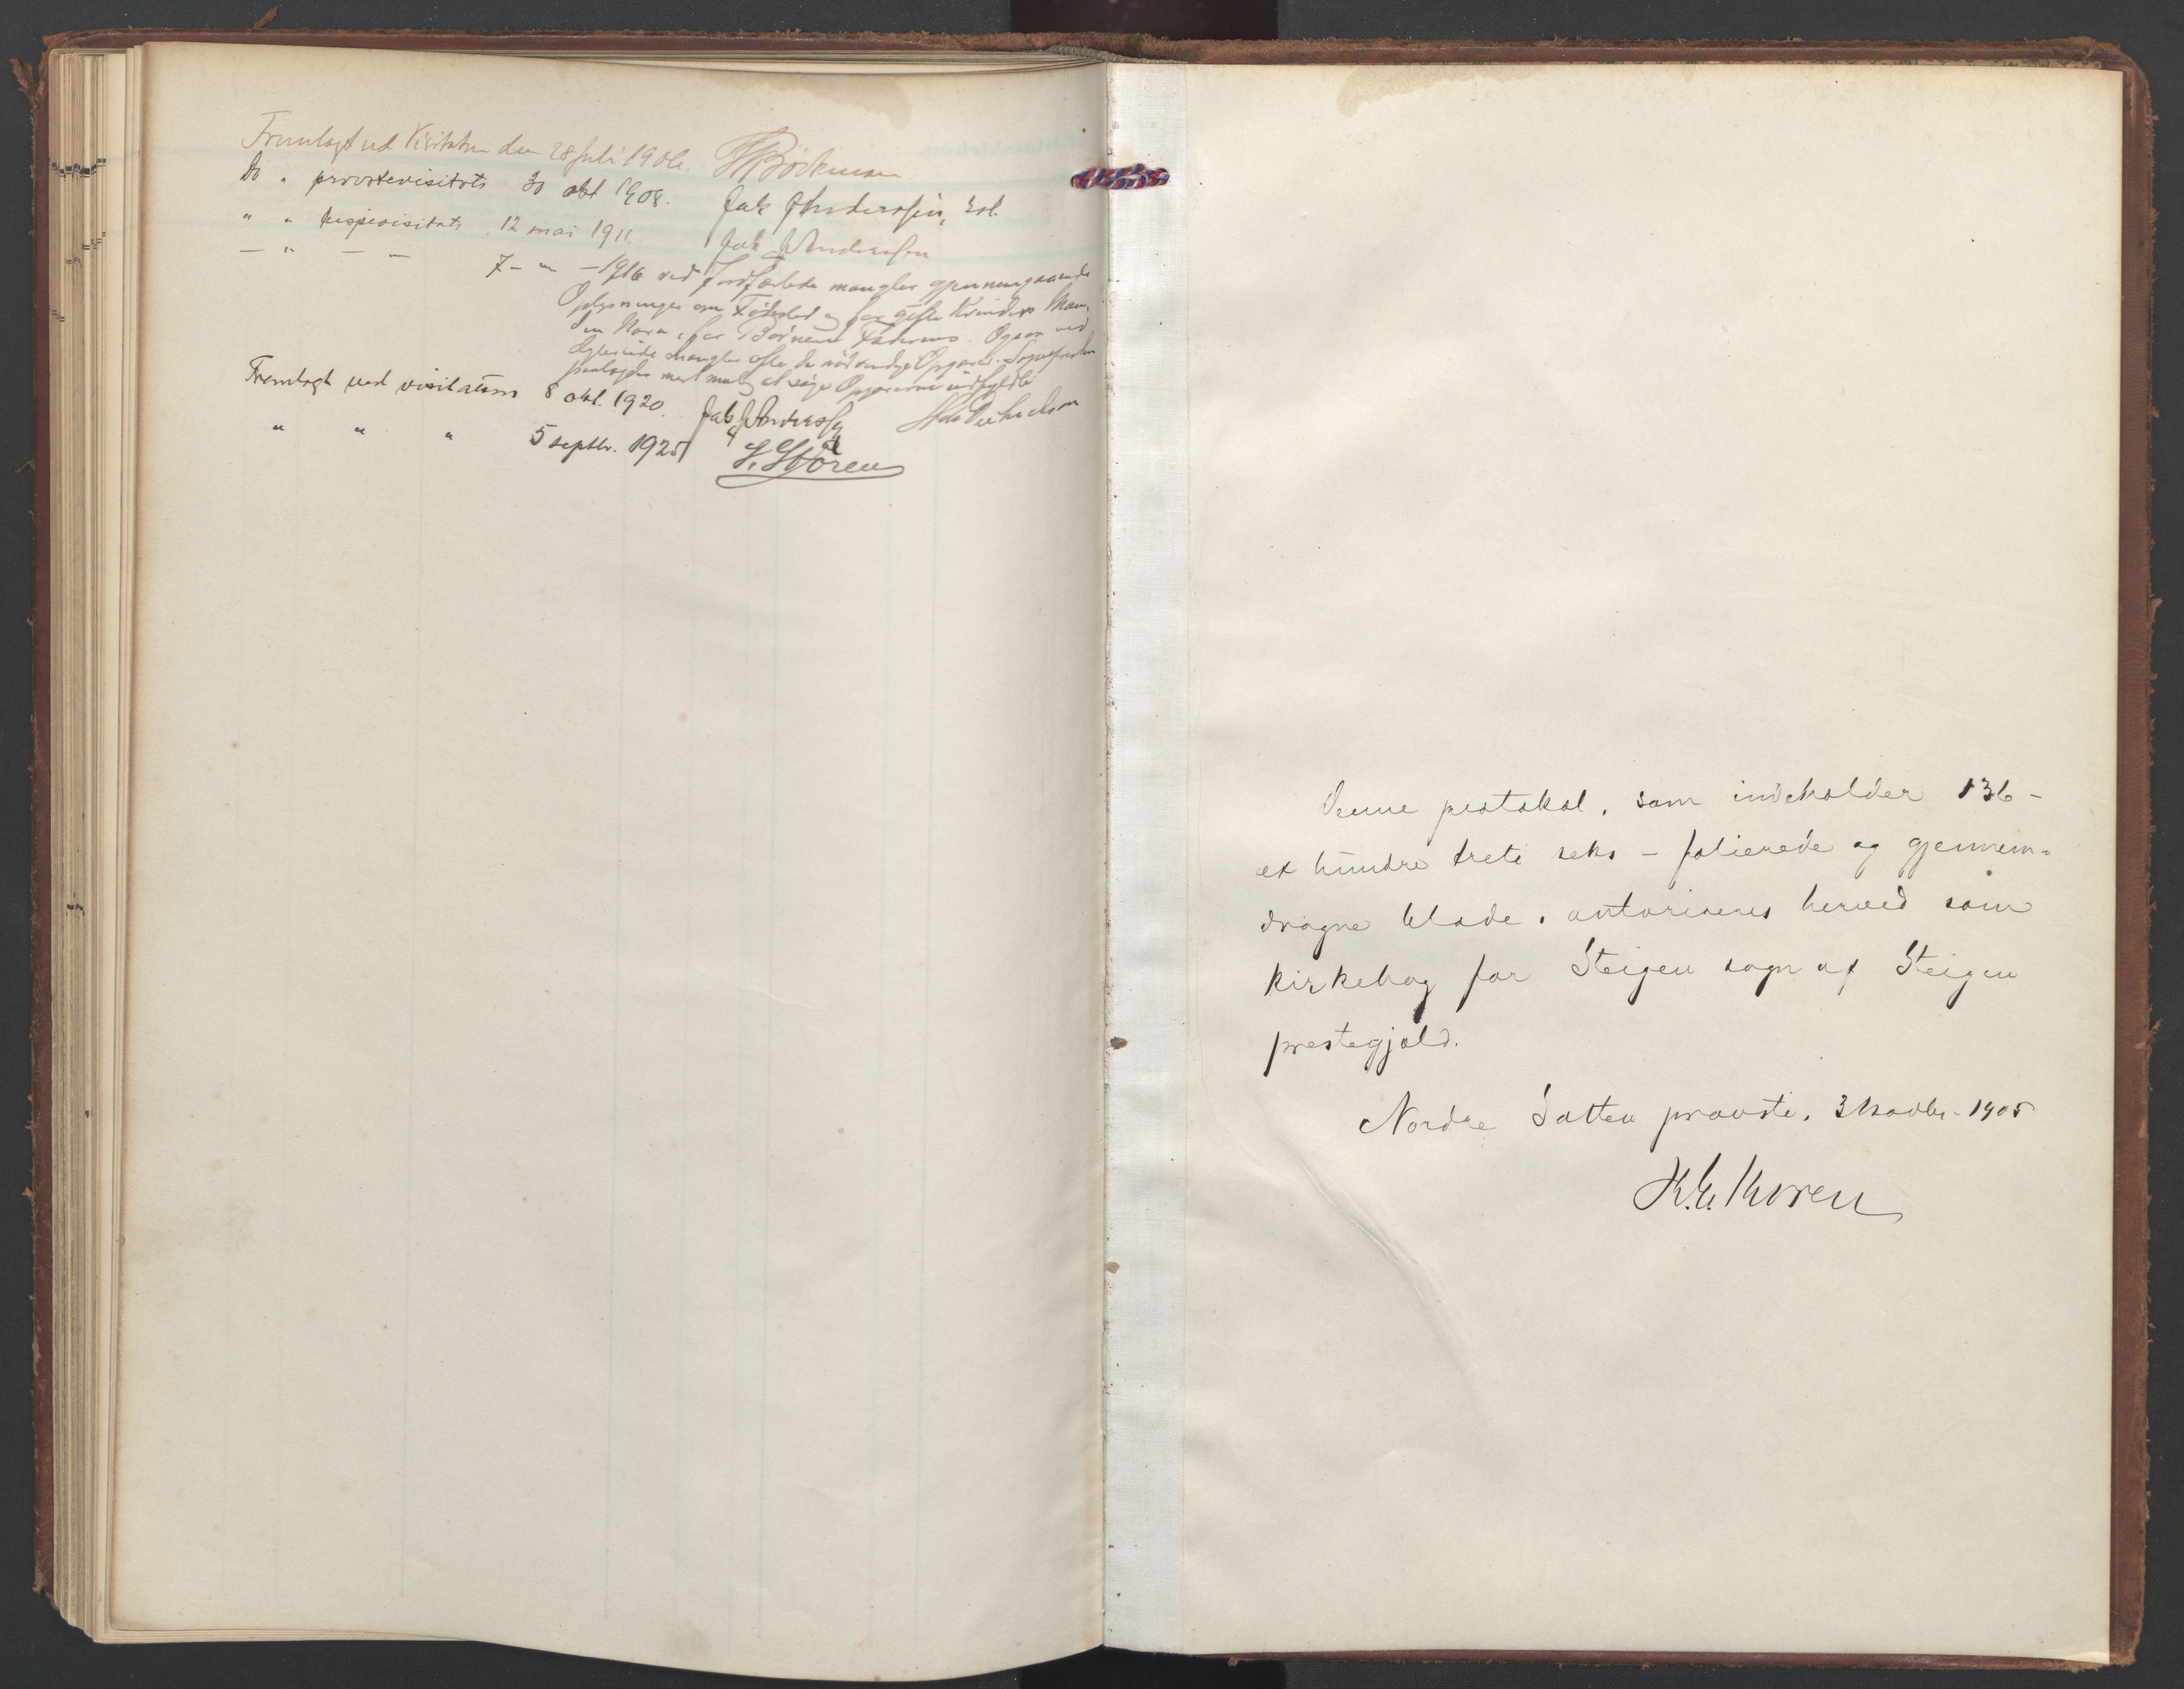 Fremlagt ved Visitatsen den 28 Juli 1906. Böckman
Do " provstevisitats 30 okt 1908. Jak J Anderssen, kst.
" " bispevisitats 12 mai 1911. Jak J Anderssen
— " — — 7 - " - 1916 ved fødsler mangler gjennemgaaende
Oplysninger om Fødested og for gifte Kvinders Man-
dens Navn, for Børnene Faderens. Ogsaa ved
Ægteviede mangler ofte de nødvendige Opgaver. Sognepresten
paalægges mest mulig at søge Opgaverne udfyldte
Fremlagt ved visitatsen 8 okt. 1920. Jak J Anderssen
" " " 5 septbr. 1925 J. Støren
Denne protokol, som indeholder 136 -
et hundre treti seks - folierede og gjennem-
dragne blade, autoriseres herved som
kirkebog for Steigen sogn af Steigen
prestegjæld.
Nordre Salten provsti, 3 novbr. 1905
K. E. Koren